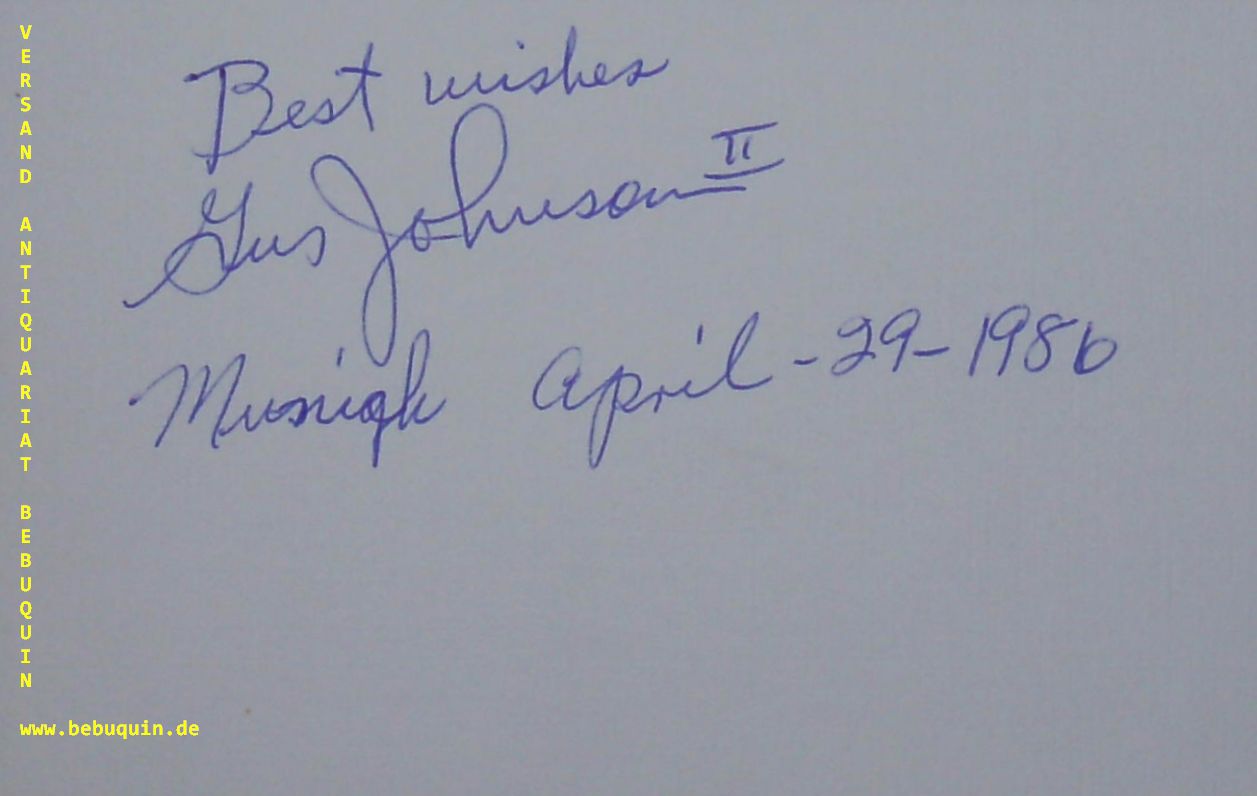 Best wishes
Gus Johnson II
Munich April - 29 - 1986
VERSAND ANTIQUARIAT BEBUQUIN
www.bebuquin.de